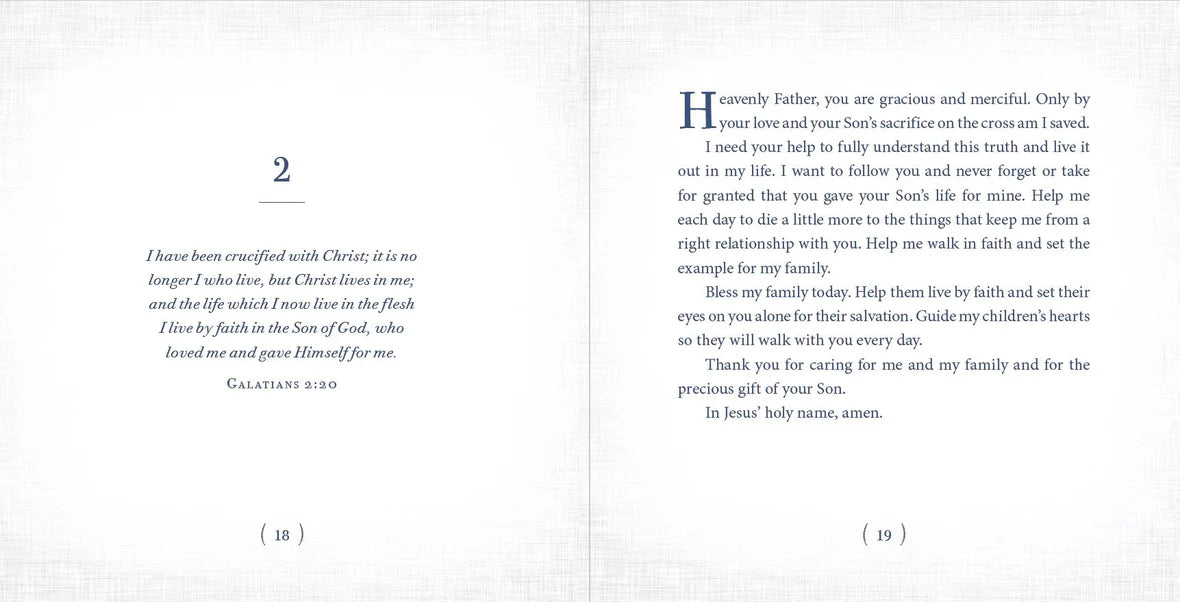 2
I have been crucified with Christ; it is no
longer I who live, but Christ lives in me;
and the life which I now live in the flesh
I live by faith in the Son of God, who
loved me and gave Himself for me.
Galatians 2:20
( 18 )
Heavenly Father, you are gracious and merciful. Only by
your love and your Son’s sacrifice on the cross am I saved.
I need your help to fully understand this truth and live it
out in my life. I want to follow you and never forget or take
for granted that you gave your Son’s life for mine. Help me
each day to die a little more to the things that keep me from a
right relationship with you. Help me walk in faith and set the
example for my family.
Bless my family today. Help them live by faith and set their
eyes on you alone for their salvation. Guide my children’s hearts
so they will walk with you every day.
Thank you for caring for me and my family and for the
precious gift of your Son.
In Jesus’ holy name, amen.
( 19 )